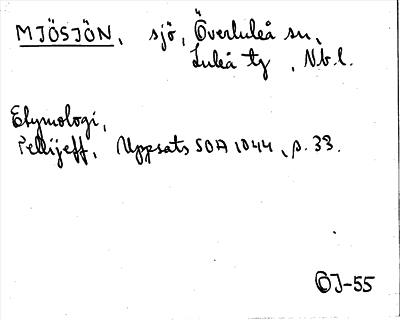 MJÖSJÖN, sjö, Överluleå sn,
Luleå tg, Nb.l.
Etymologi,
Pellijeff, Uppsats SOA 1044, s. 33.
ÖJ-55